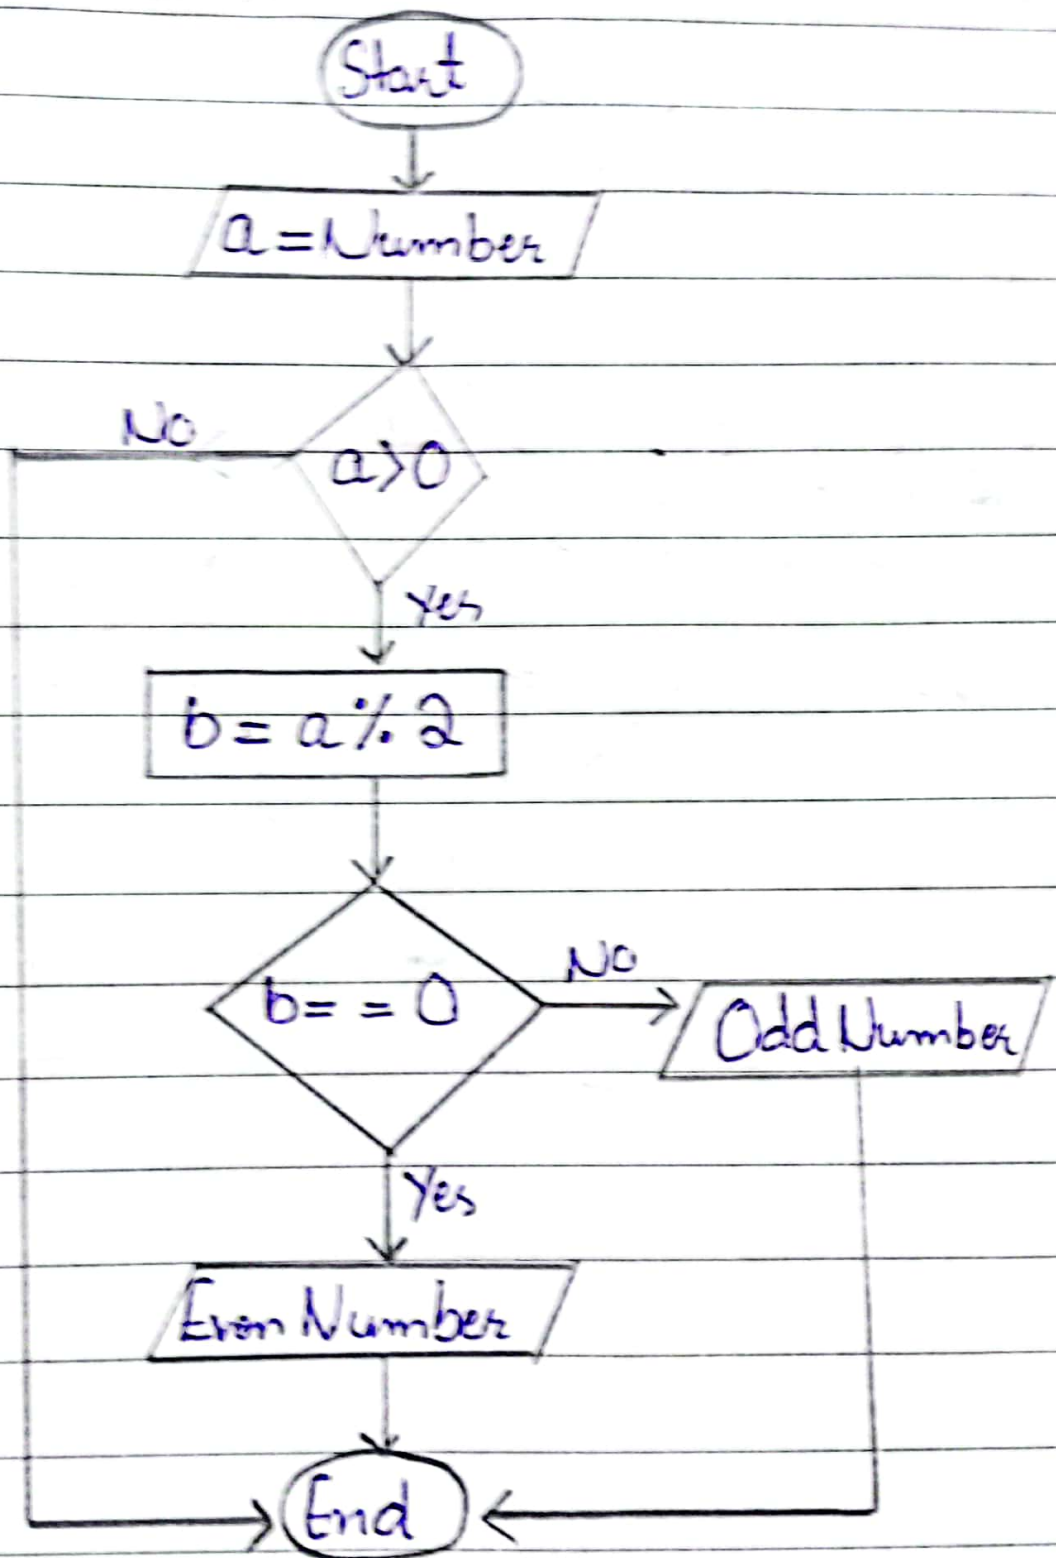 Start
a = Number
No
a>0
Yes
b = a % 2
No
b= = 0
Odd Number
Yes
Even Number
End